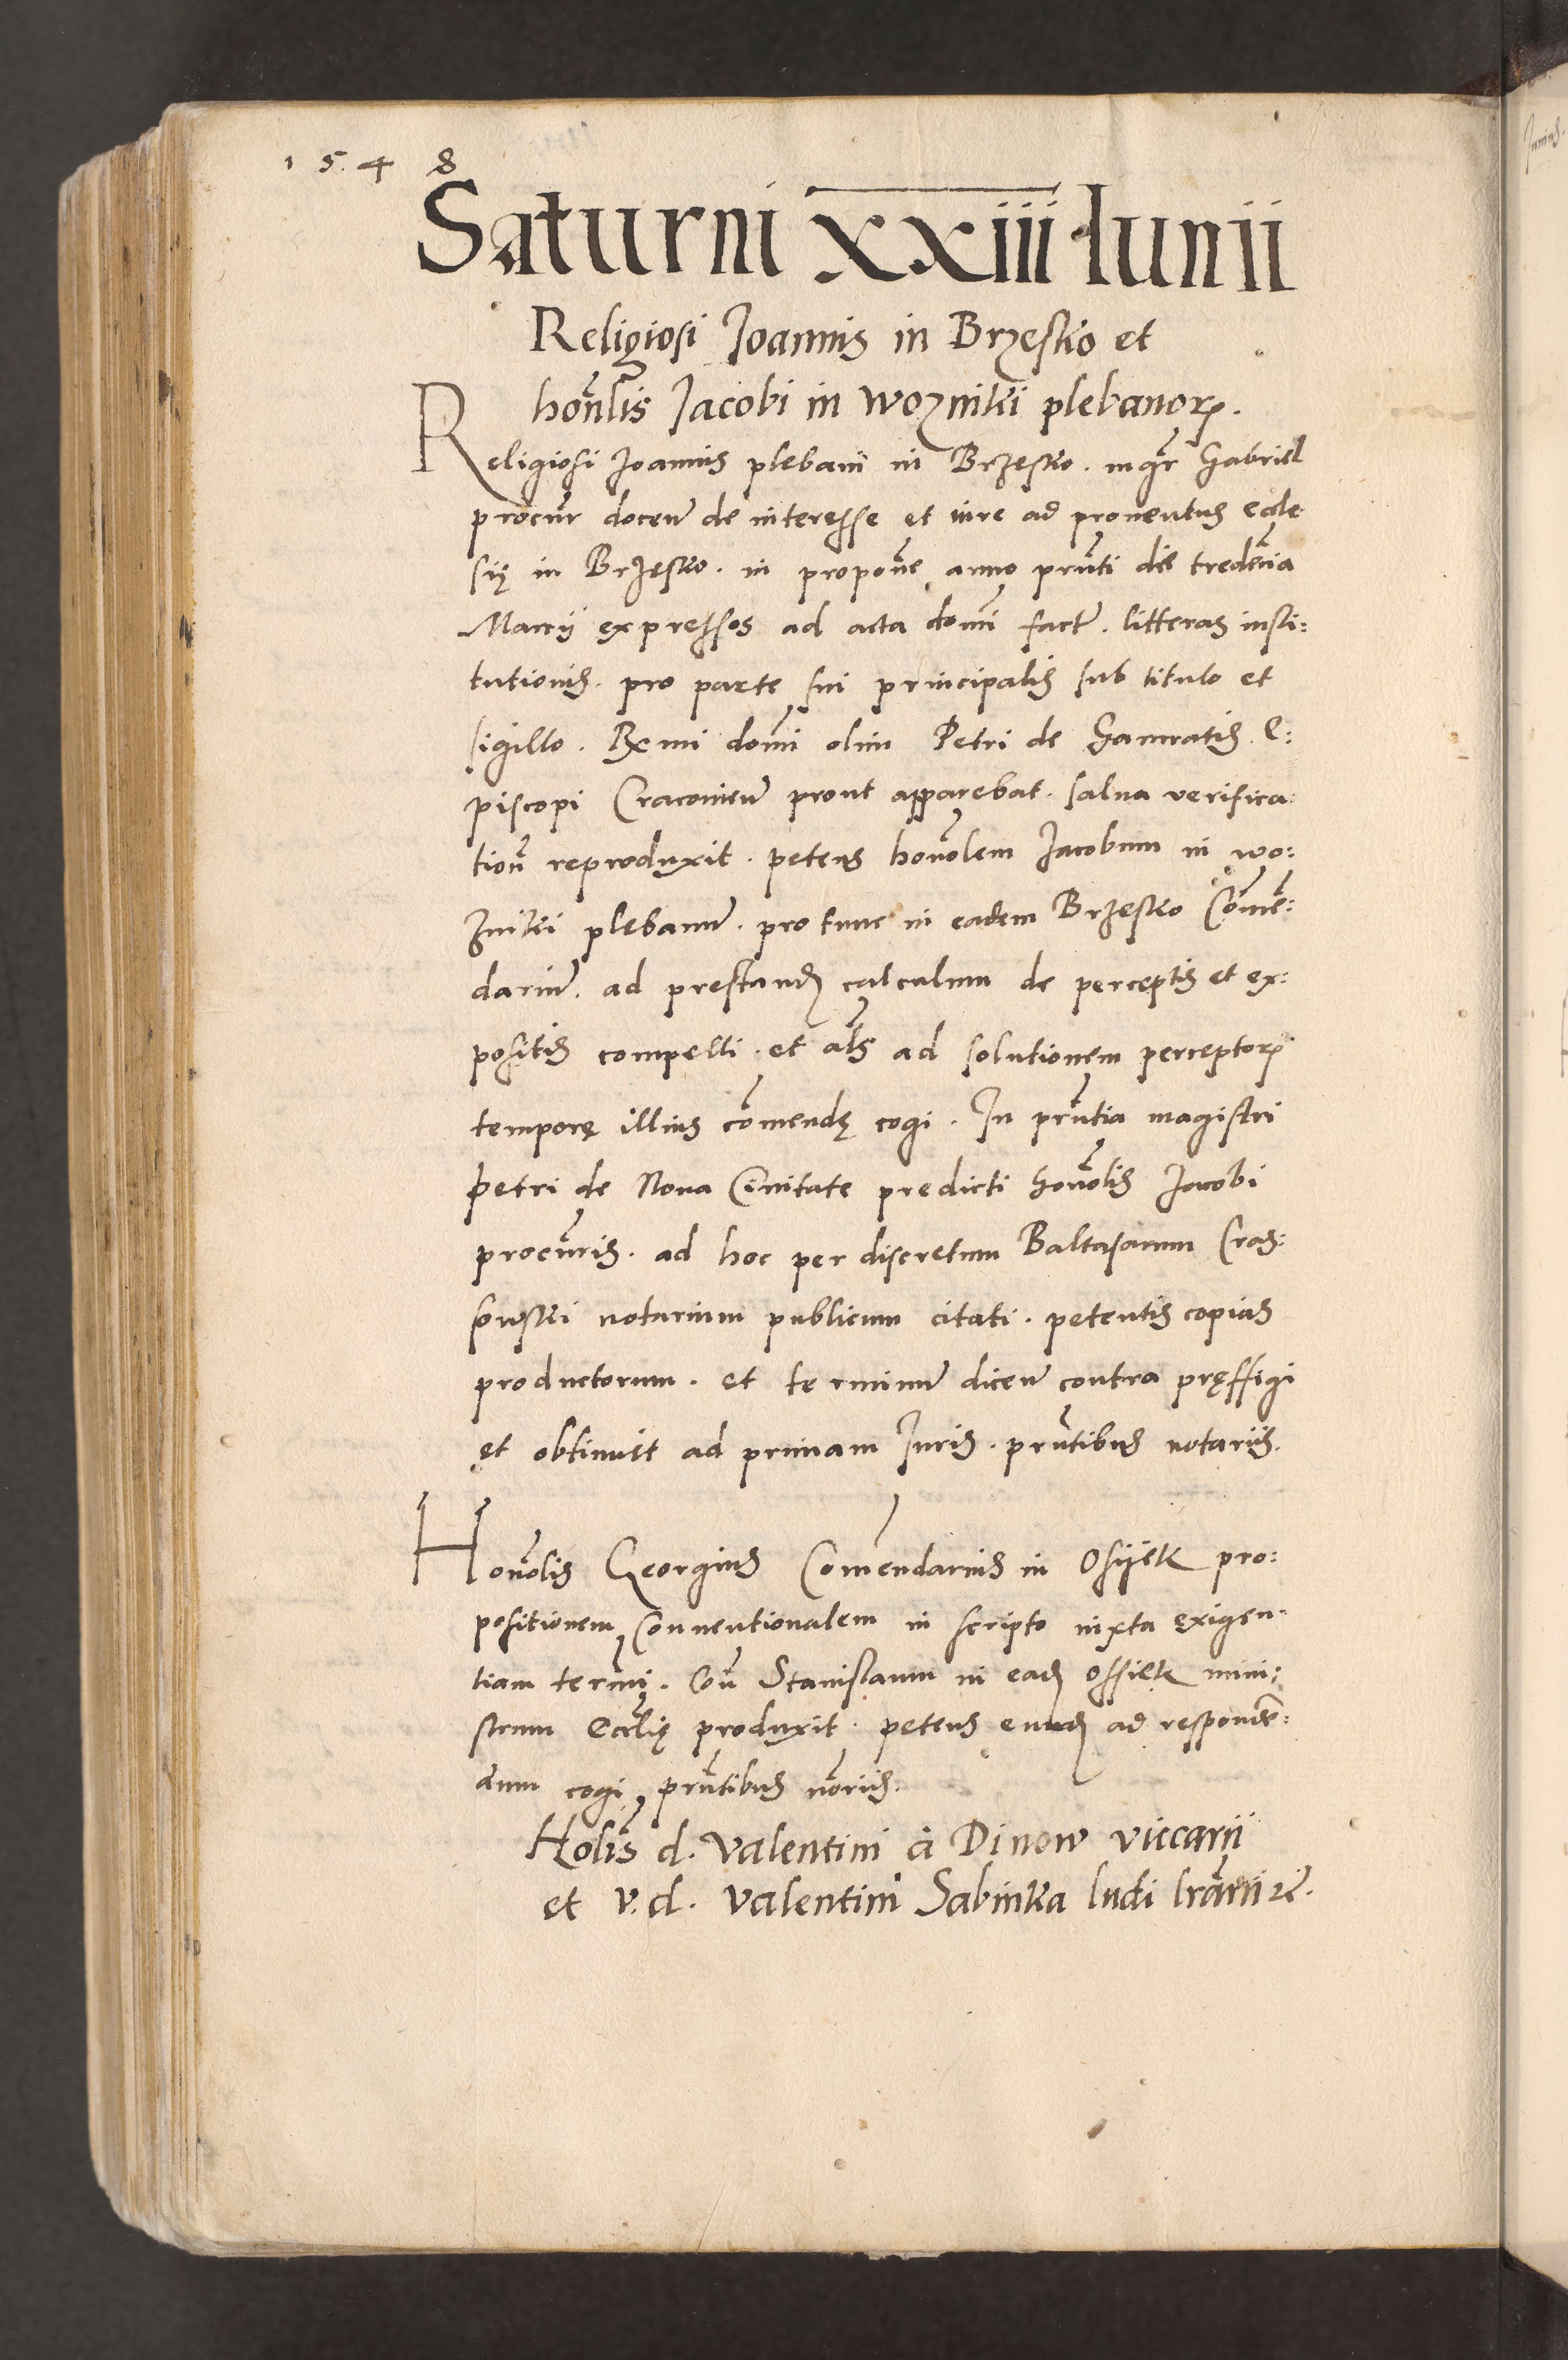 1 5. 4 8
Saturni XXIII Iunii
Religiosi Joannis in Brzesko et
honlis Jacobi in Woznikii plebanorꝝ.
Religiosi Joannis plebani in Brzesko. mgr Gabriel
procur docen de interesse et iure ad proventus eccle
się in Brzesko. in propone anno prnti die tredecia
Marcij expressos ad acta domi fact. litteras insti:
tutionis. pro parte sui principalis sub titulo et
sigillo. Rx mi domi olim Petri de Gamratis. E:
piscopi Cracovien prout apparebat. salva verifica:
tion reproduxit. petens honolem Jacobum in Wo:
znikii plebanum. pro tunc in eadem Brzesko Come:
darium. ad prestandꝫ calculum de perceptis et ex:
positis compelli. et als ad solutionem perceptorꝝ
tempore illius comendę cogi. In prntia magistri
Petri de Nova Civitate predicti honolis Jacobi
procuris. ad hoc per discretum Baltasarum Cras:
sowski notarium publicum citati. petentis copias
productorum. et terminum dicen contra pręffigi
et obtinuit ad primam Juris. prntibus notariis.
Honolis Georgius Comendarius in Osijek pro:
positionem Conventionalem in scripto iuxta exigen:
tiam termi. Con Stanislaum in eadꝫ Ossiek mini:
strum Ecclię produxit. petens eundꝫ ad responden:
dum cogi, prntibus noriis.
Holis d. Valentini à Dinow viccarii
et v. d. Valentini Sabinka ludi lrarii rē.